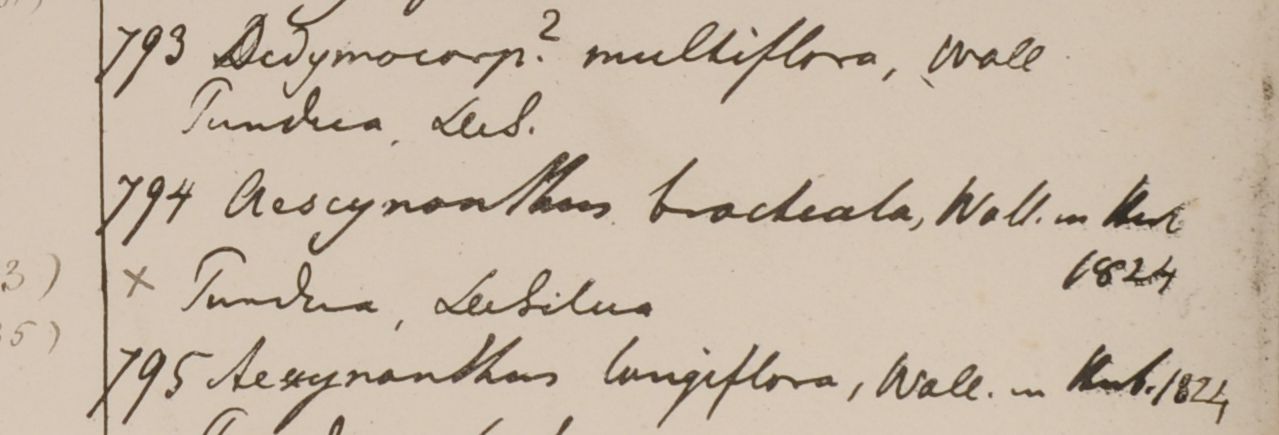 793 Didymocarp? multiflora, Wall
Tundua, DeS.
794 Aescynanthus bracteata, Wall. in Herb
1824
x Tundua, DeSilva
795 Aescynanthus longiflora, Wall. in Herb. 1824
3)
35)